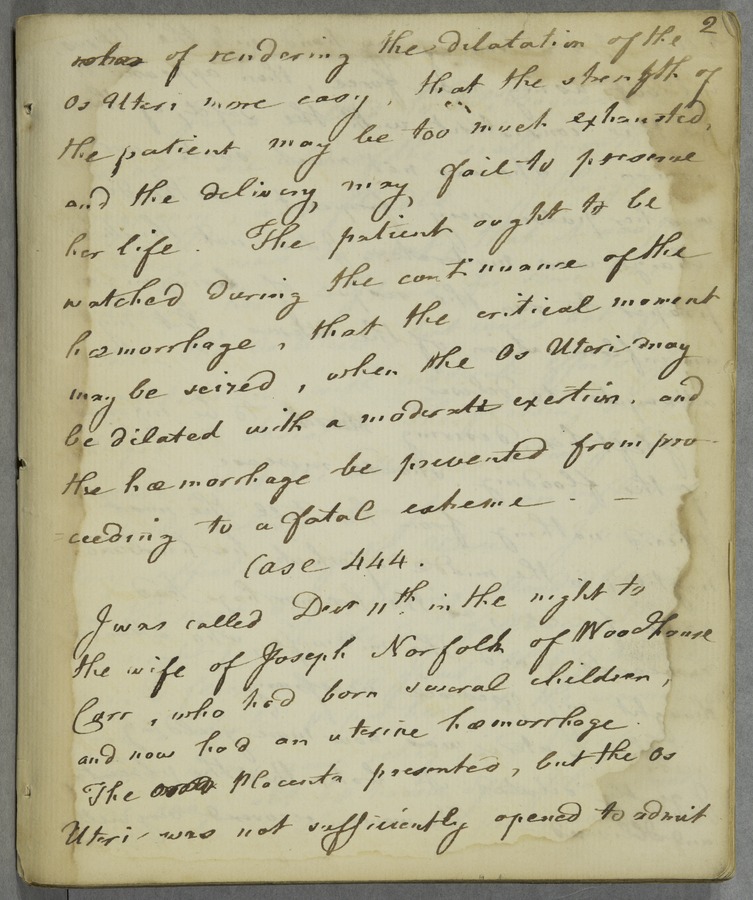 2
of rendering the dilatation of the
Os Uteri more easy, that the strength of
the patient may be too much exhausted,
and the delivery, may, fail to preserve
her life. The patient ought to be
watched during the continuance of the
hæmorrhage, that the critical moment
may be seized, when the Os Uteri may
be dilated with a moderate exertion, and
the hæmorrhage be prevented from pro-
ceeding to a fatal extreme. —
Case 444.
I was called Decr 11th. in the night to
the wife of Joseph Norfolk of Woodhouse
Carr, who had born several children,
and now had an uterine hæmorrhage.
The Placenta presented, but the Os
Uteri was not sufficiently opened to admit